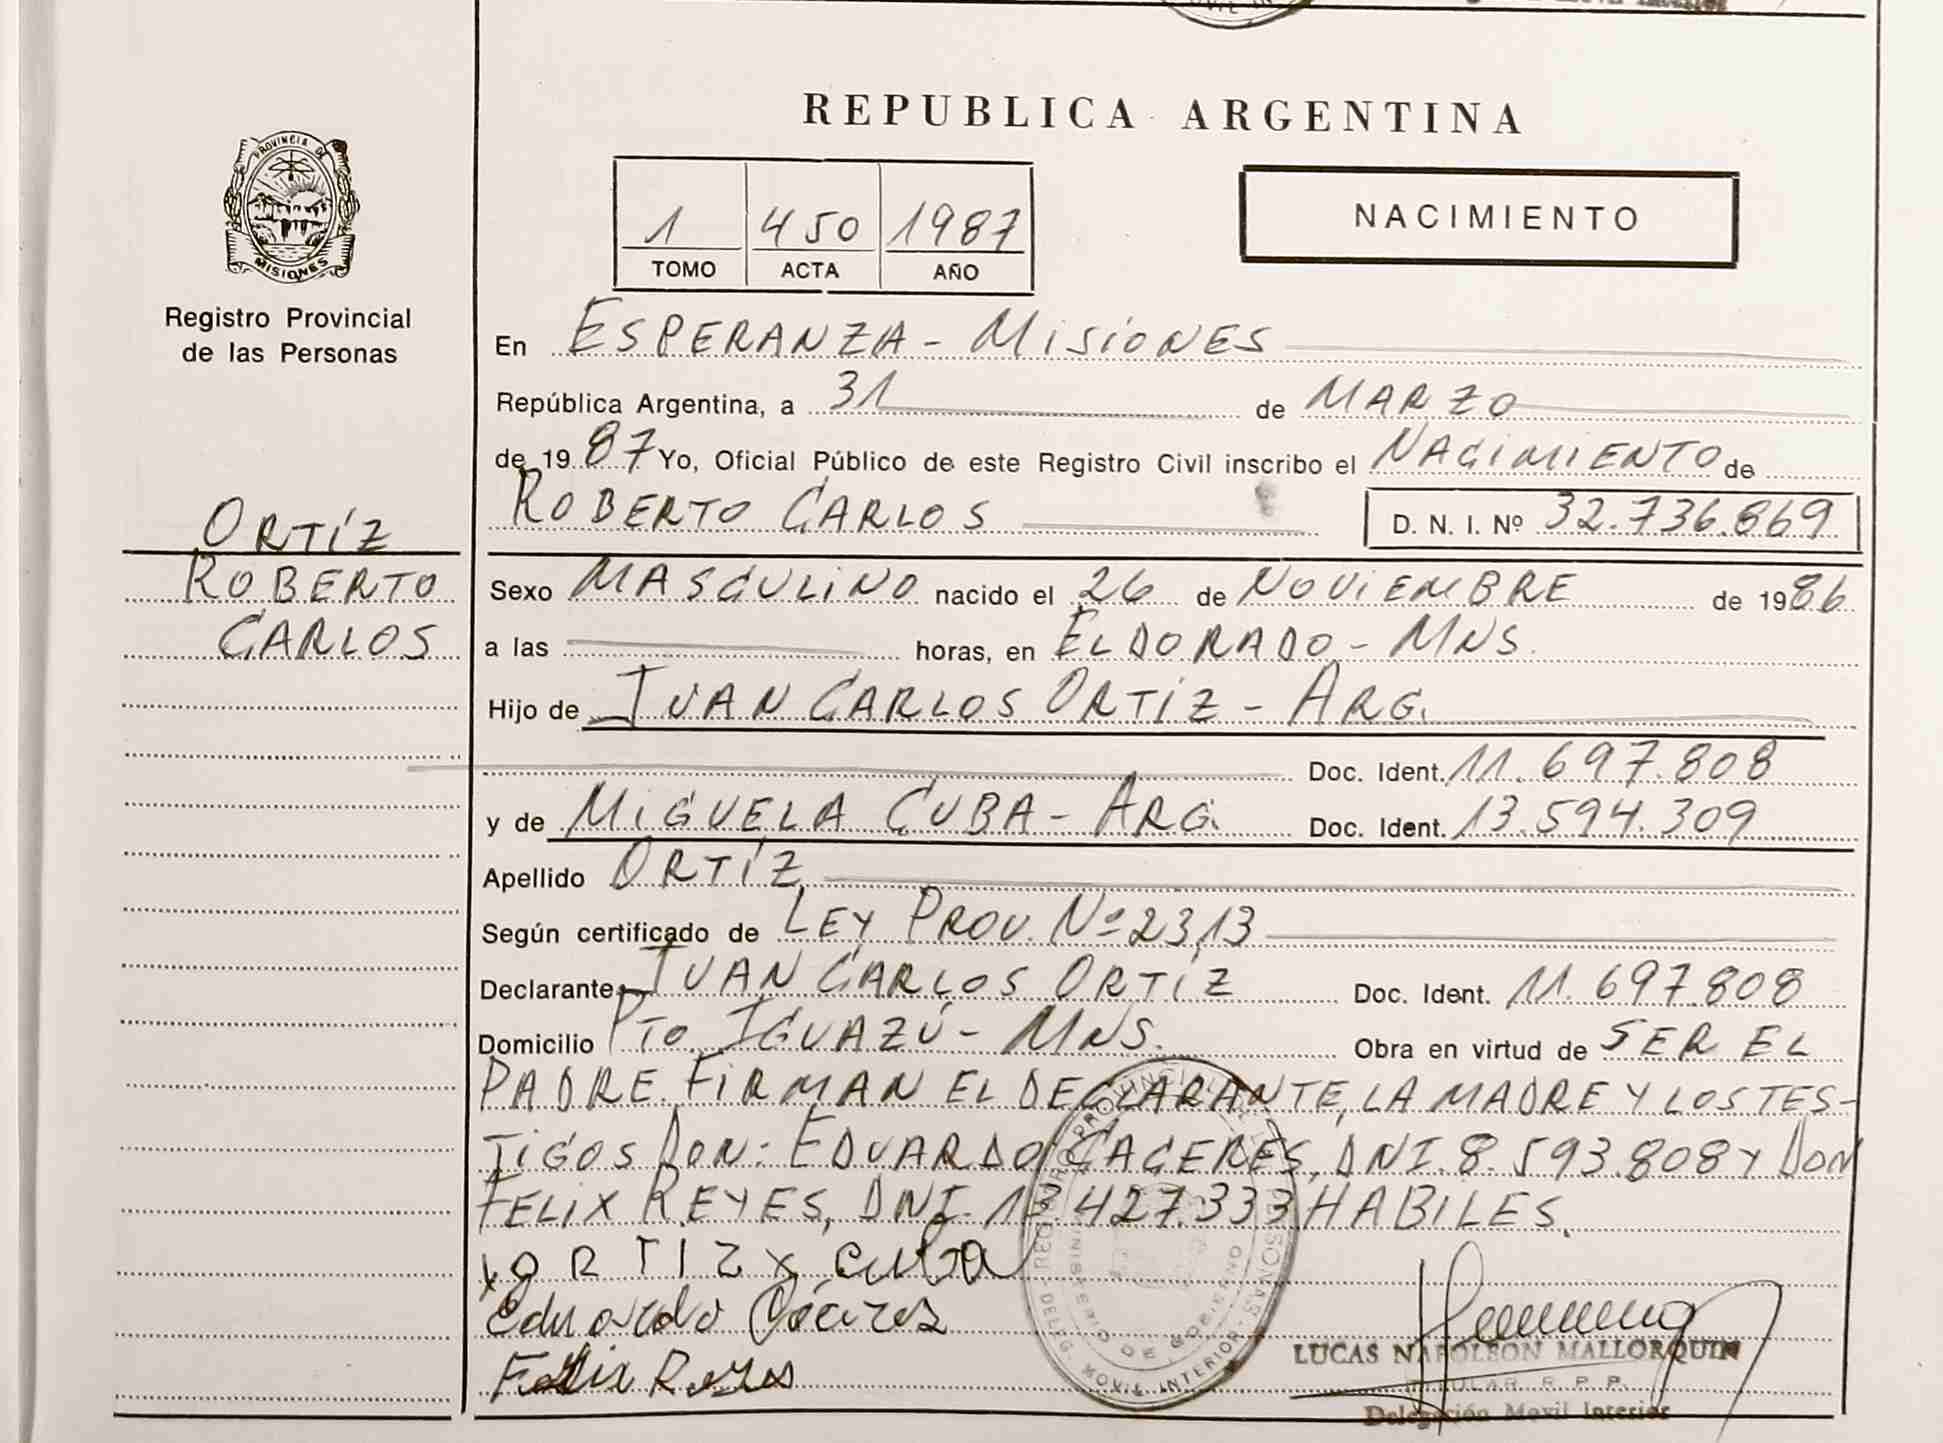 REPUBLICA ARGENTINA
PROVINCIA DE
MISIONES
Registro Provincial
de las Personas
1 450 1987
TOMO ACTA AÑO
NACIMIENTO
En ESPERANZA - MISIONES
República Argentina, a 31 de MARZO
de 1987 Yo, Oficial Público de este Registro Civil inscribo el NACIMIENTO de
ROBERTO CARLOS D. N. I. Nº 32.736.869
ORTÍZ
ROBERTO
CARLOS
Sexo MASCULINO nacido el 26 de NOVIEMBRE de 1986
a las horas, en ELDORADO - MNS.
Hijo de JUAN CARLOS ORTÍZ - ARG.
Doc. Ident. 11.697.808
y de MIGUELA CUBA - ARG. Doc. Ident. 13.594.309
Apellido ORTÍZ
Según certificado de LEY PROV. Nº 2313
Declarante JUAN CARLOS ORTÍZ Doc. Ident. 11.697.808
Domicilio PTO. IGUAZÚ - MNS. Obra en virtud de SER EL
PADRE. FIRMAN EL DECLARANTE, LA MADRE Y LOS TES-
TIGOS DON: EDUARDO CACERES, DNI. 8.593.808 Y DON
FELIX REYES, DNI. 13.427.333 HABILES.
x ORTIZ x Cuba
Eduardo Cáceres
Felix Reyes
MINISTERIO DE GOBIERNO
DELEG. MOVIL INTERIOR
LUCAS NAPOLEON MALLORQUIN
TITULAR R. P. P.
Delegación Movil Interior